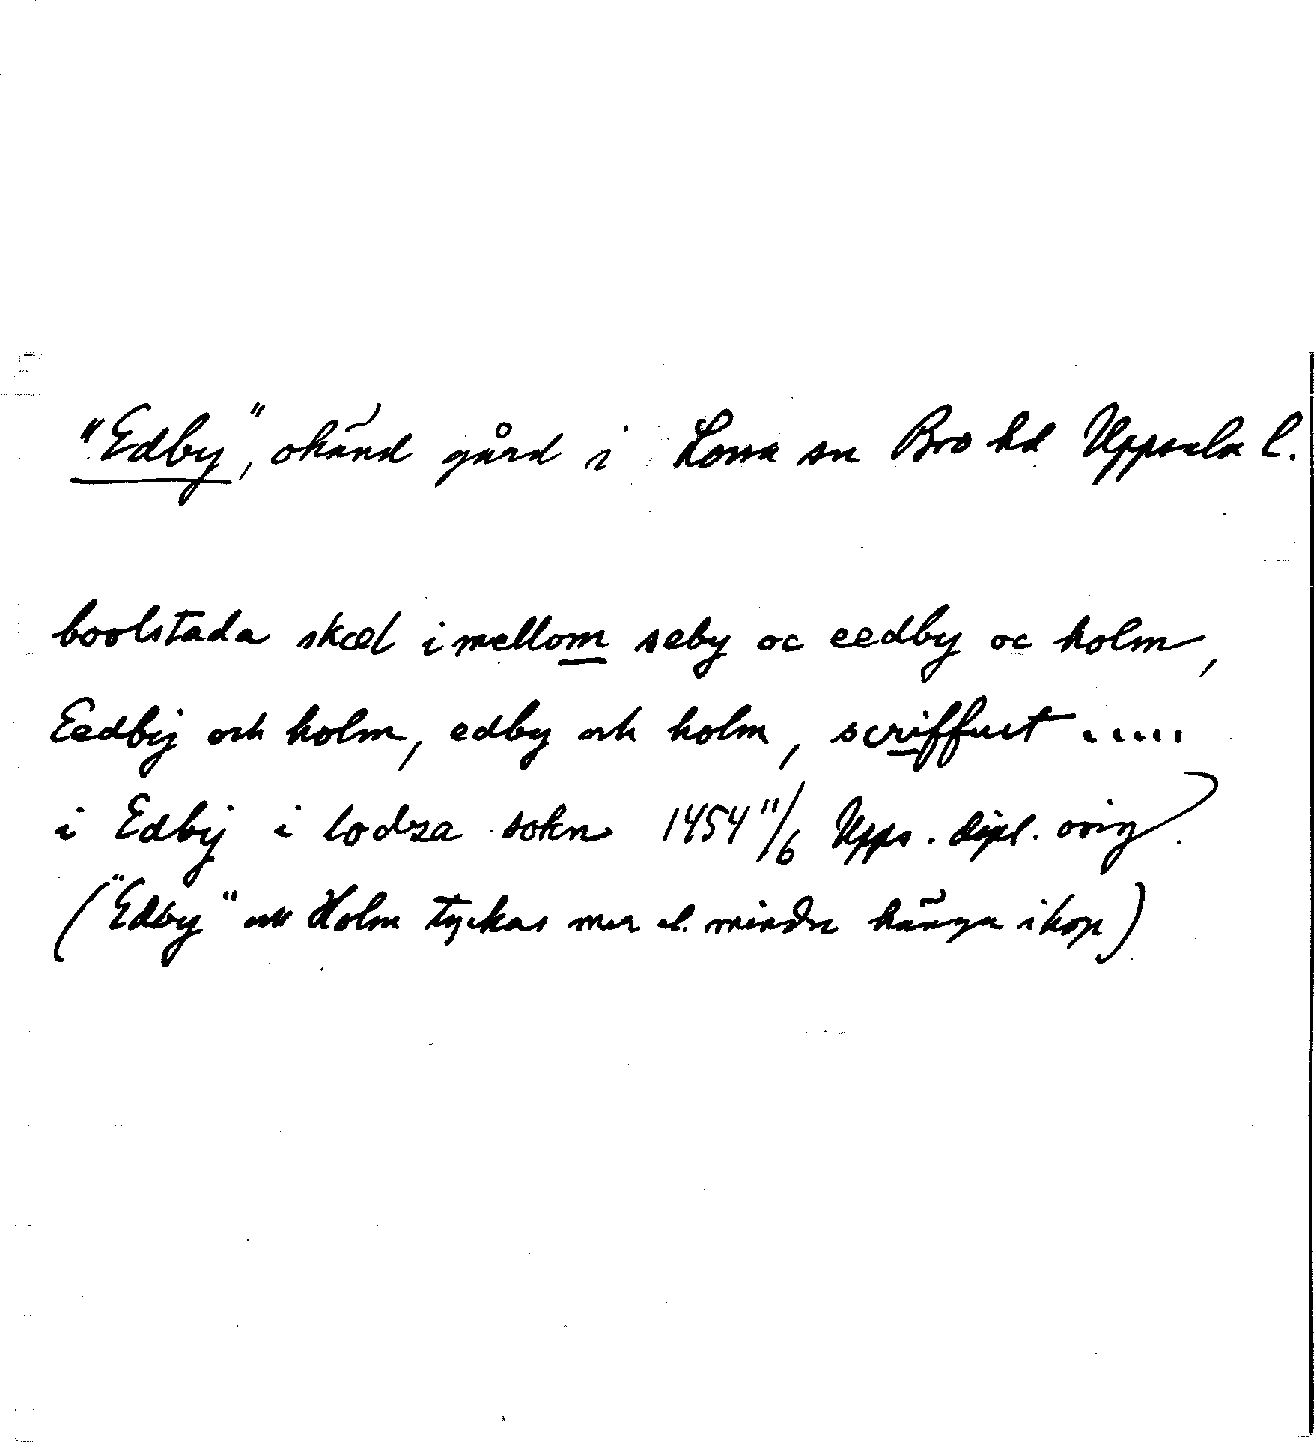 "Edby", okänd gård i Lossa sn Bro hd Uppsala l.
boolstada skæl imellom seby oc eedby oc holm,
Eedbij och holm, edby och holm, scriffuet .....
i Edbij i lodza sokn 1454 11/6 Upps. dipl. orig.
("Edby" och Holm tyckas mer el. mindre hänga ihop)